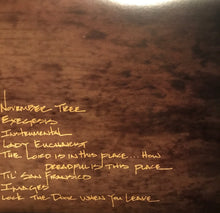 November Tree
Exegesis
Instrumental
Lady Eucharist
The Lord is in this place... How
Dreadful is this place
Til' San Fransico
Images
Lock The Door When You Leave